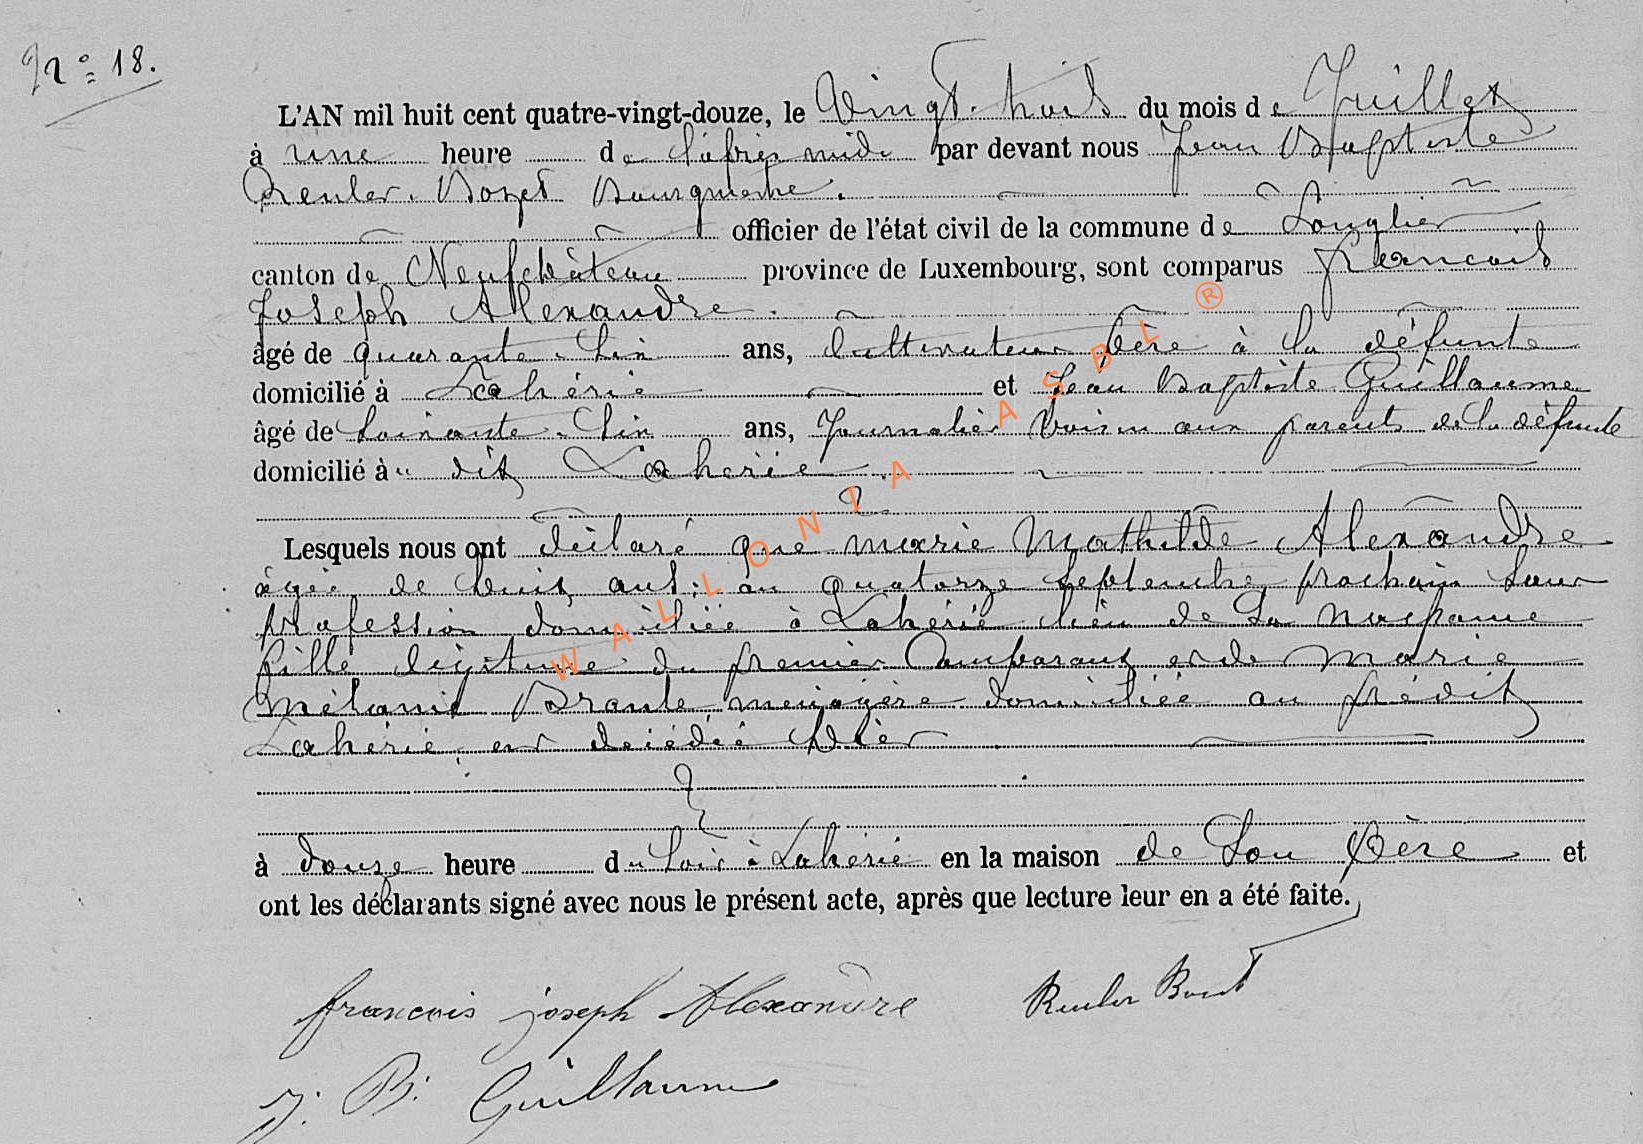 No 18.
L'AN mil huit cent quatre-vingt-douze, le Vingt-trois du mois de Juillet
à une heure de l'après midi par devant nous Jean Baptiste
Reuler-Bozet Bourgmestre.
officier de l'état civil de la commune de Longlier
canton de Neufchâteau province de Luxembourg, sont comparus francois
Joseph Alexandre.
âgé de quarante-Sin ans, Cultivateur Père à la défunte
domicilié à Lahérie et Jean Baptiste Guillaume
âgé de Soixante-Sin ans, Journalier Voisin aux parents de la défunte
domicilié à u dit Laherie.
Lesquels nous ont déclaré que marie Mathilde Alexandre
âgée de huit ans; au quatorze Septembre prochain Sans
profession domiciliée à Lahérie lieu de Sa naissance
fille légitime du premier Comparant et de Marie
Mélanie Brante, menagère domiciliée au prédit
Lahérie, est décédée Hier
à douze heure du Soir à Lahérie en la maison de Son Père et
ont les déclarants signé avec nous le présent acte, après que lecture leur en a été faite.
francois joseph Alexandre Reuler Bozet
J. B. Guillaume
WALLONIA ASBL ®